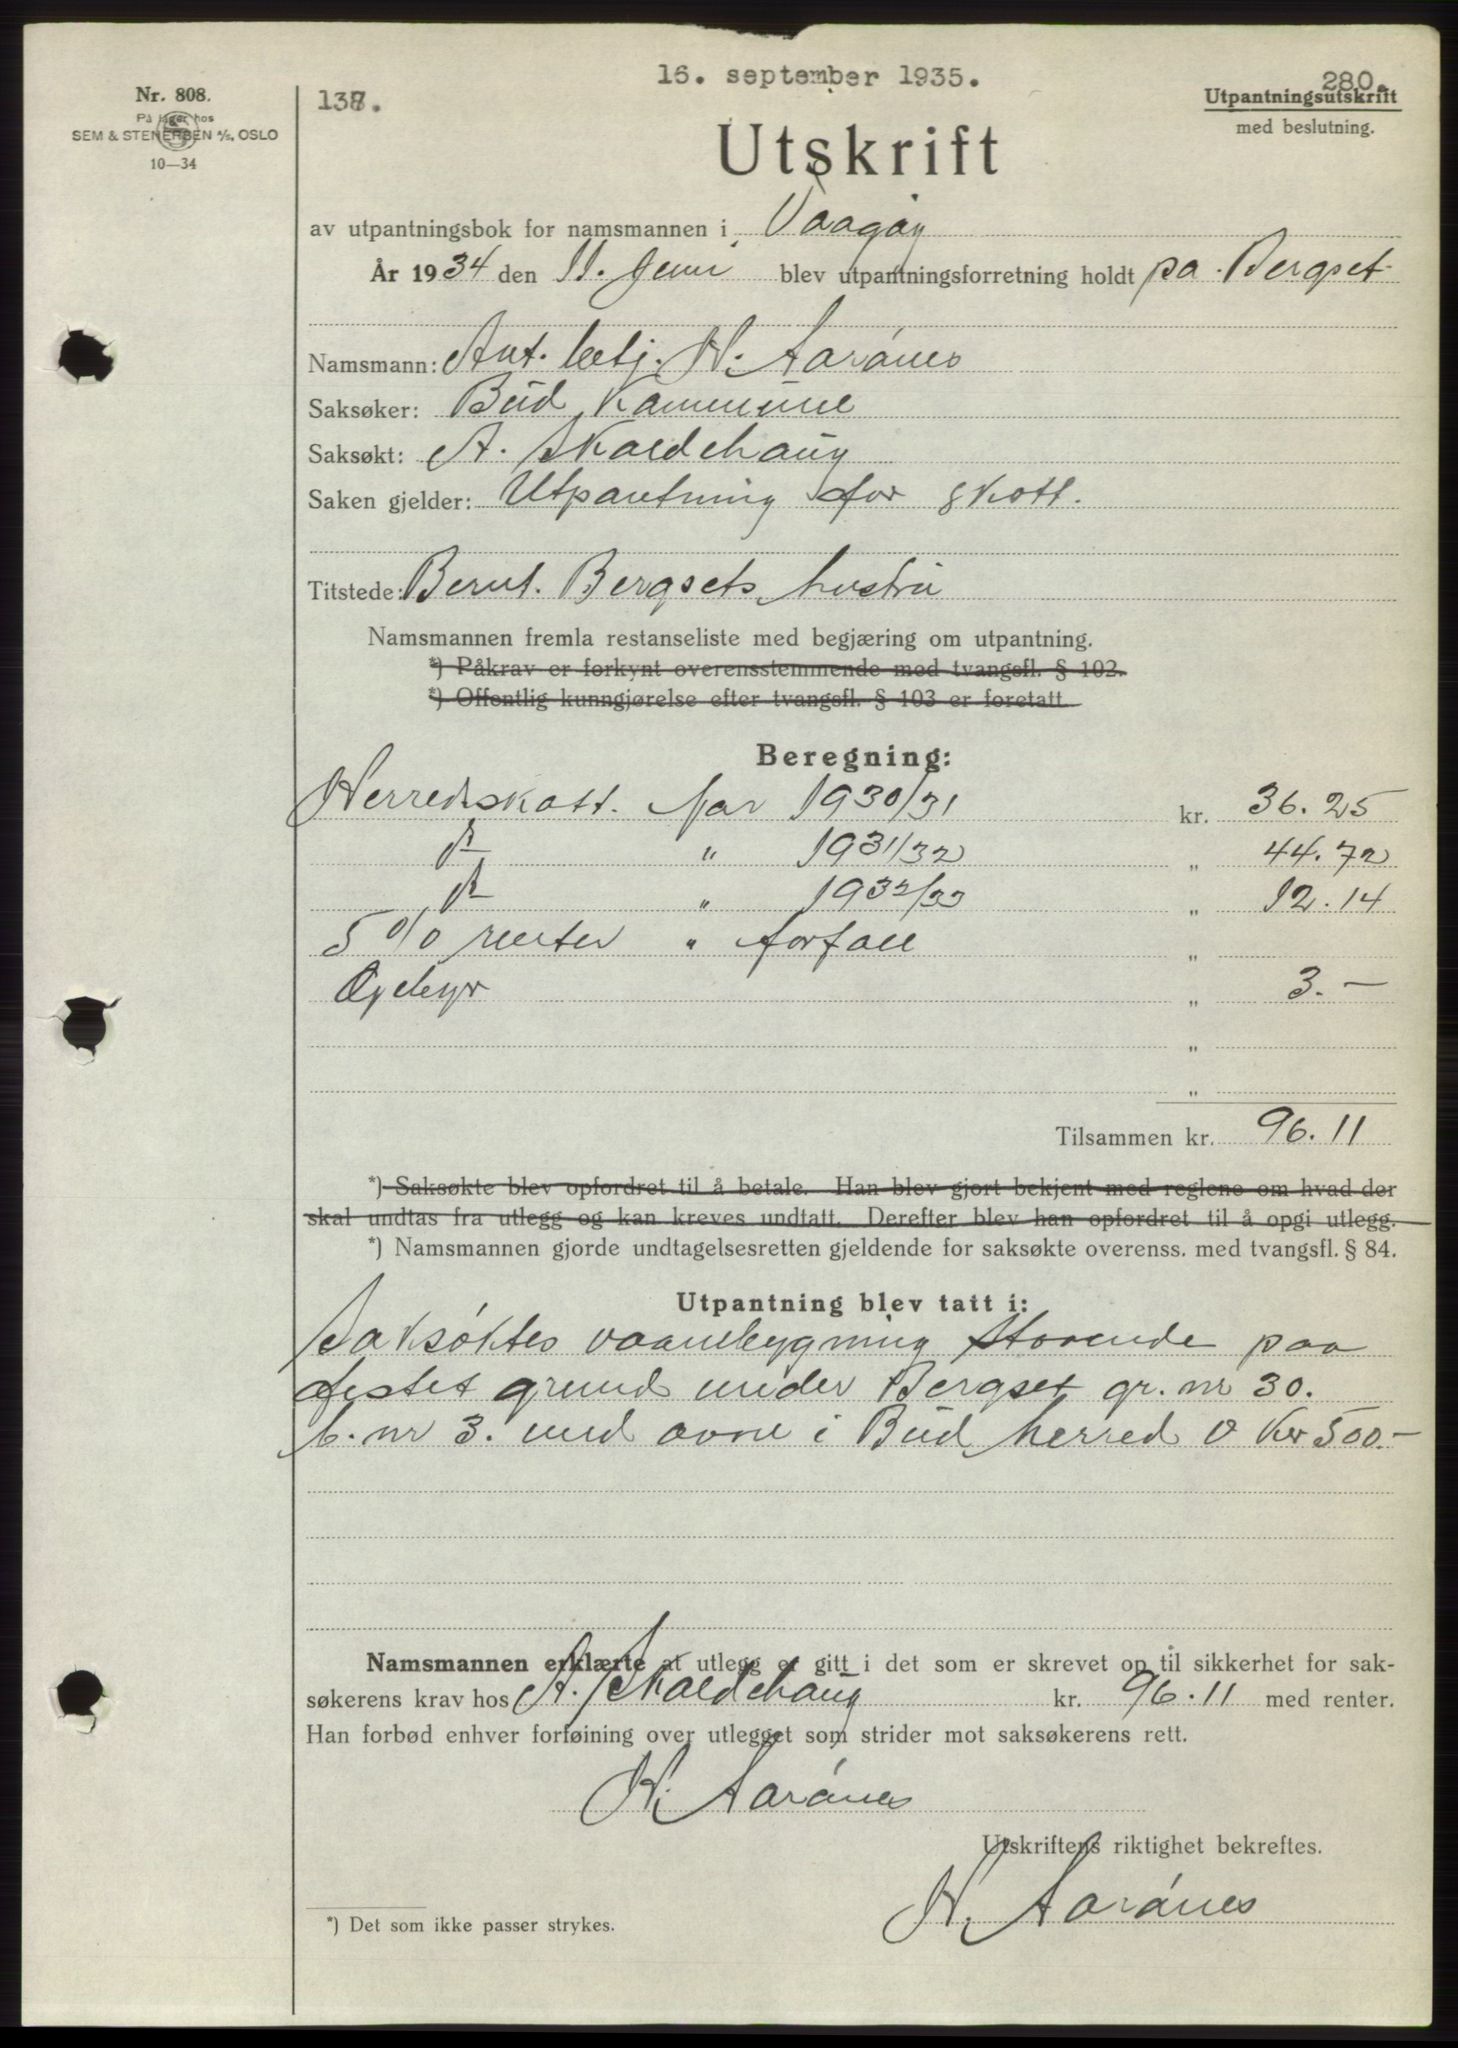 16. september 1935.
280.
137.
Nr. 808.
På lager hos
SEM & STENERSEN A/S, OSLO
10—34
Utpantningsutskrift
med beslutning.
Utskrift
av utpantningsbok for namsmannen i Vaagøy
År 1934 den 11. Juni blev utpantningsforretning holdt pa Bergset
Namsmann: Aut. betj. N. Aarønes
Saksøker: Bud Kommune
Saksøkt: A. Skaldehaug
Saken gjelder: Utpantning for skatt.
Titstede: Bernt Bergsets hustru
Namsmannen fremla restanseliste med begjæring om utpantning.
*) Påkrav er forkynt overensstemmende med tvangsfl. § 102.
*) Offentlig kunngjørelse efter tvangsfl. § 103 er foretatt
Beregning:
Herredsskatt for 1930/31 kr. 36.25
do " 1931/32 " 44.72
do " 1932/33 " 12.14
5 % renter " forfall "
Gebyr " 3.—
"
"
Tilsammen kr. 96.11
*) Saksøkte blev opfordret til å betale. Han blev gjort bekjent med reglene om hvad der
skal undtas fra utlegg og kan kreves undtatt. Derefter blev han opfordret til å opgi utlegg.
*) Namsmannen gjorde undtagelsesretten gjeldende for saksøkte overenss. med tvangsfl. § 84.
Utpantning blev tatt i:
Saksøktes vaanebygning staaende paa
festet grund under Bergset gr. nr 30.
b. nr 3. med ovne i Bud herred v Kr 500.—
Namsmannen erklærte at utlegg er gitt i det som er skrevet op til sikkerhet for sak-
søkerens krav hos A. Skaldehaug kr. 96.11 med renter.
Han forbød enhver forføining over utlegget som strider mot saksøkerens rett.
N. Aarønes
Utskriftens riktighet bekreftes.
N. Aarønes
*) Det som ikke passer strykes.